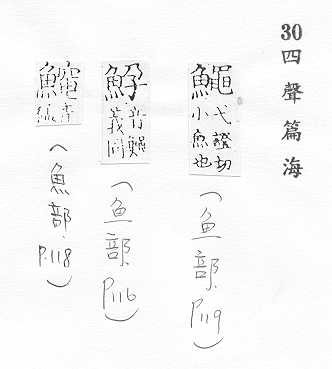 30四聲篇海
鱦弋證切小魚也(鱼部.P.119)
䱆音蠅義同(鱼部.P.116)
(魚部.P.118)